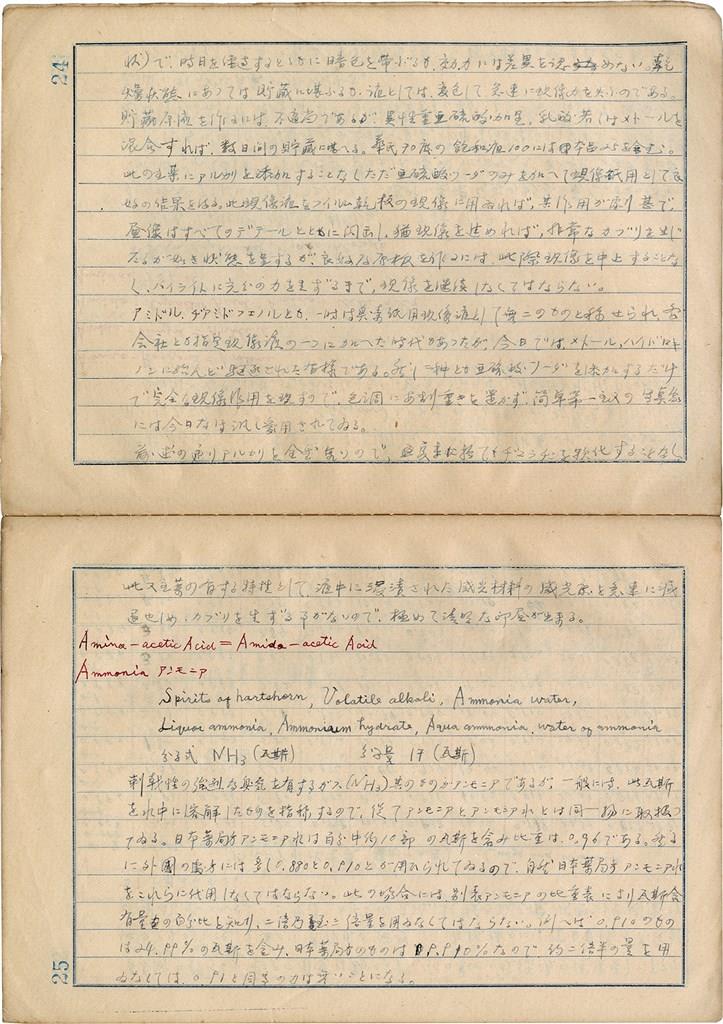 24
状)で、時日を経過するとともに暗色を帯ぶるが、効力には差異を認めない。乾
燥状態にあっては貯蔵に堪ふるが、液としては、変色して急速に現像力を失ふのである。
貯蔵原液を作るには、不適当であるが、異性重亜硫酸加里、乳酸若くはメトールを
混合すれば、数日間の貯蔵に堪へる。華氏70度の飽和液100には25を含む。
此の主薬にアルカリを添加することなしただ亜硫酸ソーダのみを加へて現像紙用として良
好の結果を得る。此現像液をフイルム乾板の現像に用ゐれば、其作用が
画像はすべてのデテールとともに閃出し、猶現像を進めれば、非常なカブリを生じ
たるが如き状態を呈するが、良好な原板を作るには、此際現像を中止することな
く、ハイライトに充分の力を生ずるまで、現像を継続しなくてはならない。
アミドル、ヂアミドフエノルとか、一時は臭素紙用現像液として無二のものと称せられ、各
会社とも指定現像液の一つに加へた時代があつたが、今日では、メトール、ハイドロキ
ノンに殆んど駆逐された有様である。然し一種とか亜硫酸ソーダを添加するだけ
で完全な現像作用を現すので、色調にあまり重きを置かず、簡単第一主義の写真
には今日なほ汎く愛用されてゐる。
前述の通りアルカリを全然要しないので、ゼラチンを軟化することなく
此又主薬の有する特性として、液中に浸漬された感光材料の感光度を急速に減
退せしめ、カブリを生ずる事がないので、極めて清明な印画が出来る。
Amino-acetic Acid = Amido-acetic Acid
Ammonia アンモニア
Spirits of hartshorn, Volatile alkali, Ammonia water,
Liquor ammonia, Ammonium hydrate, Aqua ammonia, water of ammonia
分子式 NH3 (瓦斯) 分子量 17 (瓦斯)
刺戟性の強烈な臭気を有するガス(NH3)其のものがアンモニアであるが、一般には、此瓦斯
を水中に溶解したものを指称するので、従てアンモニアとアンモニア水とは同一物に取扱つ
てゐる。日本薬局方アンモニア水は百分中約10部の瓦斯を含み比重は、0.96である。然る
に外国の処方には多く0.880と0.910とが用ひられてゐるので、自然日本薬局方アンモニア水
をこれらに代用しなくてはならない。此の場合には、別表アンモニアの比重表により瓦斯含
有量の百分比を知り、二倍乃至三倍量を用ゐなくてはならない。例へば0.910のもの
は24.99%の瓦斯を含み、日本薬局方のものは9.910%なので約二倍半の量を用
ゐなくては、0.91と同等の力は無いことになる。
25